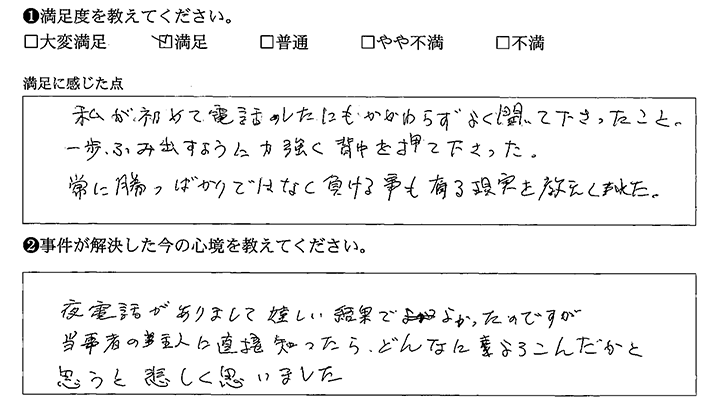 ❶満足度を教えてください。
□大変満足 ☑満足 □普通 □やや不満 □不満
満足に感じた点
私が初めて電話のしたにもかかわらずよく聞いて下さったこと。
一歩ふみ出すように力強く背中を押て下さった。
常に勝つばかりではなく負ける事も有る現実を教えてくれた。
❷事件が解決した今の心境を教えてください。
夜電話がありまして嬉しい結果でよかったのですが
当事者の主人は直接知ったら、どんなによろこんだかと
思うと悲しく思いました